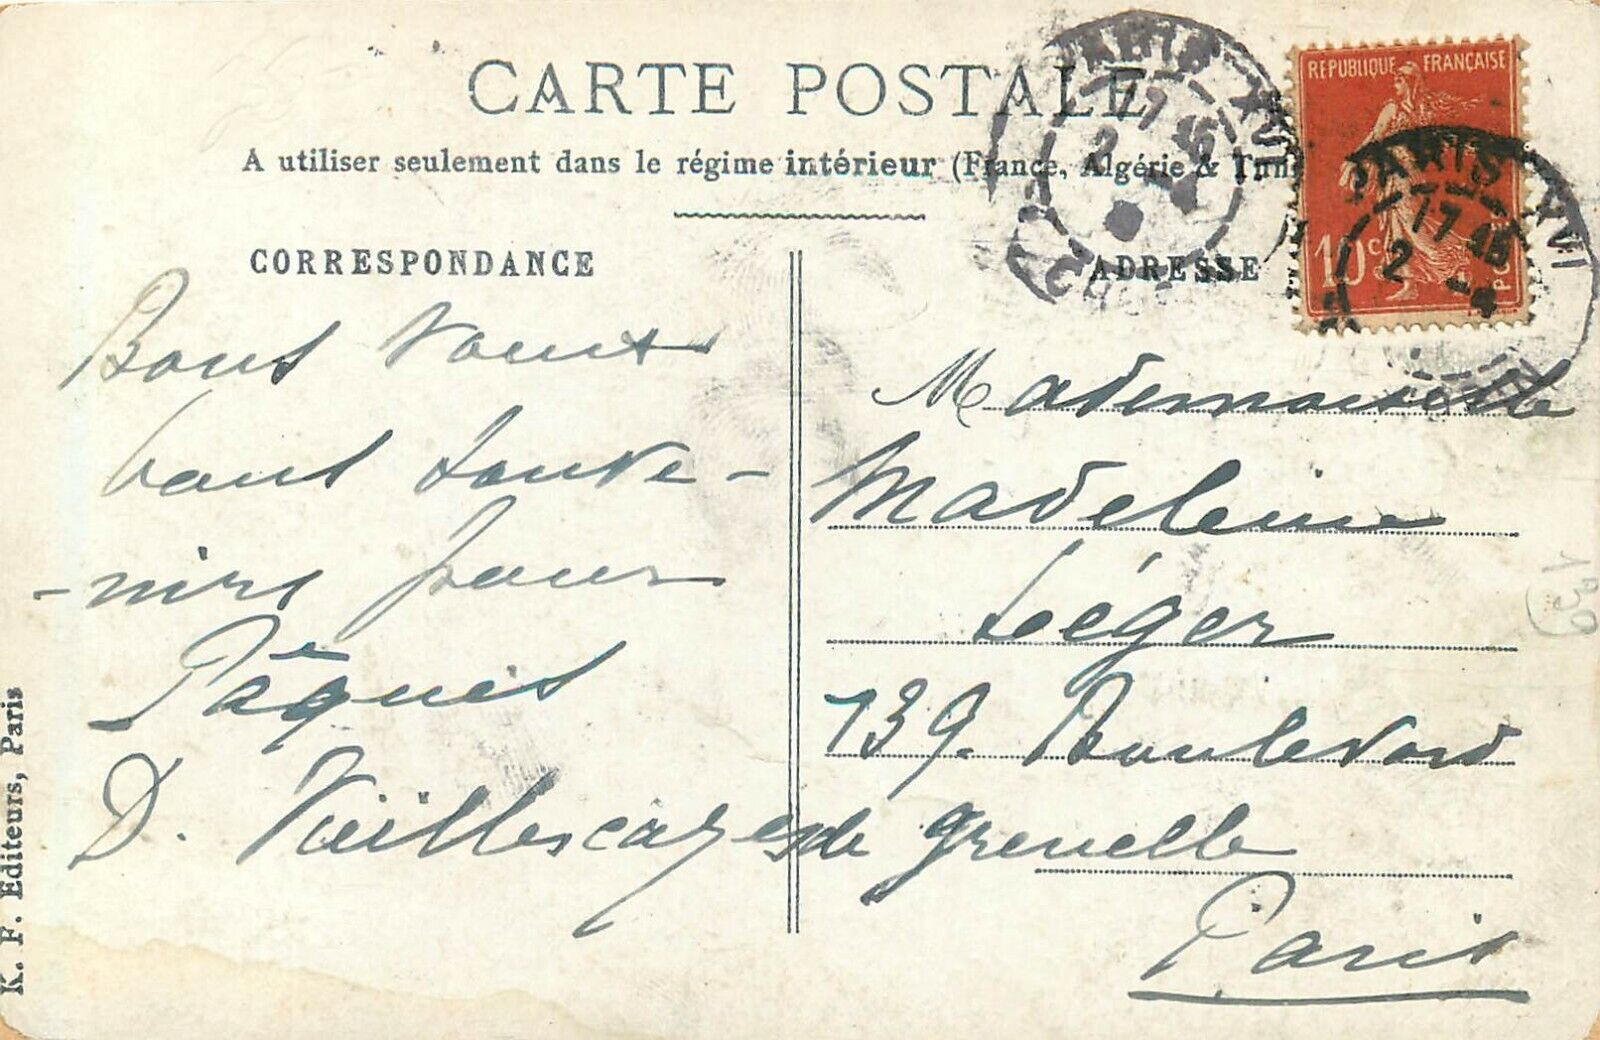 CARTE POSTALE
A utiliser seulement dans le régime intérieur (France, Algérie & Tuni
CORRESPONDANCE
Bons vœux
bons souve-
-nirs pour
Pâques
D. Vieillescazes
ADRESSE
Mademoiselle
Madeleine
Léger
139. Boulevard
de Grenelle
Paris
K. F. Editeurs, Paris
REPUBLIQUE FRANÇAISE
10 c
PARIS XVI
17 45
2 - 4
PARIS XVI
17 45
2 - 4
139